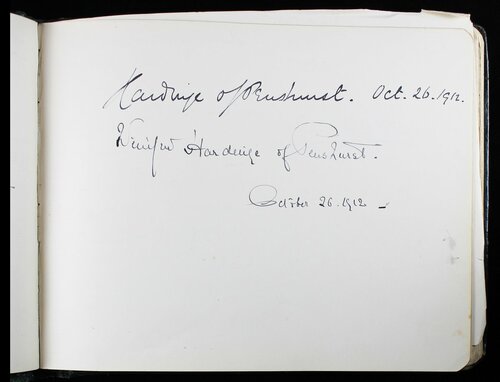 Hardinge of Penshurst. Oct. 26. 1912.
Winifred Hardinge of Penshurst.
October 26. 1912 -